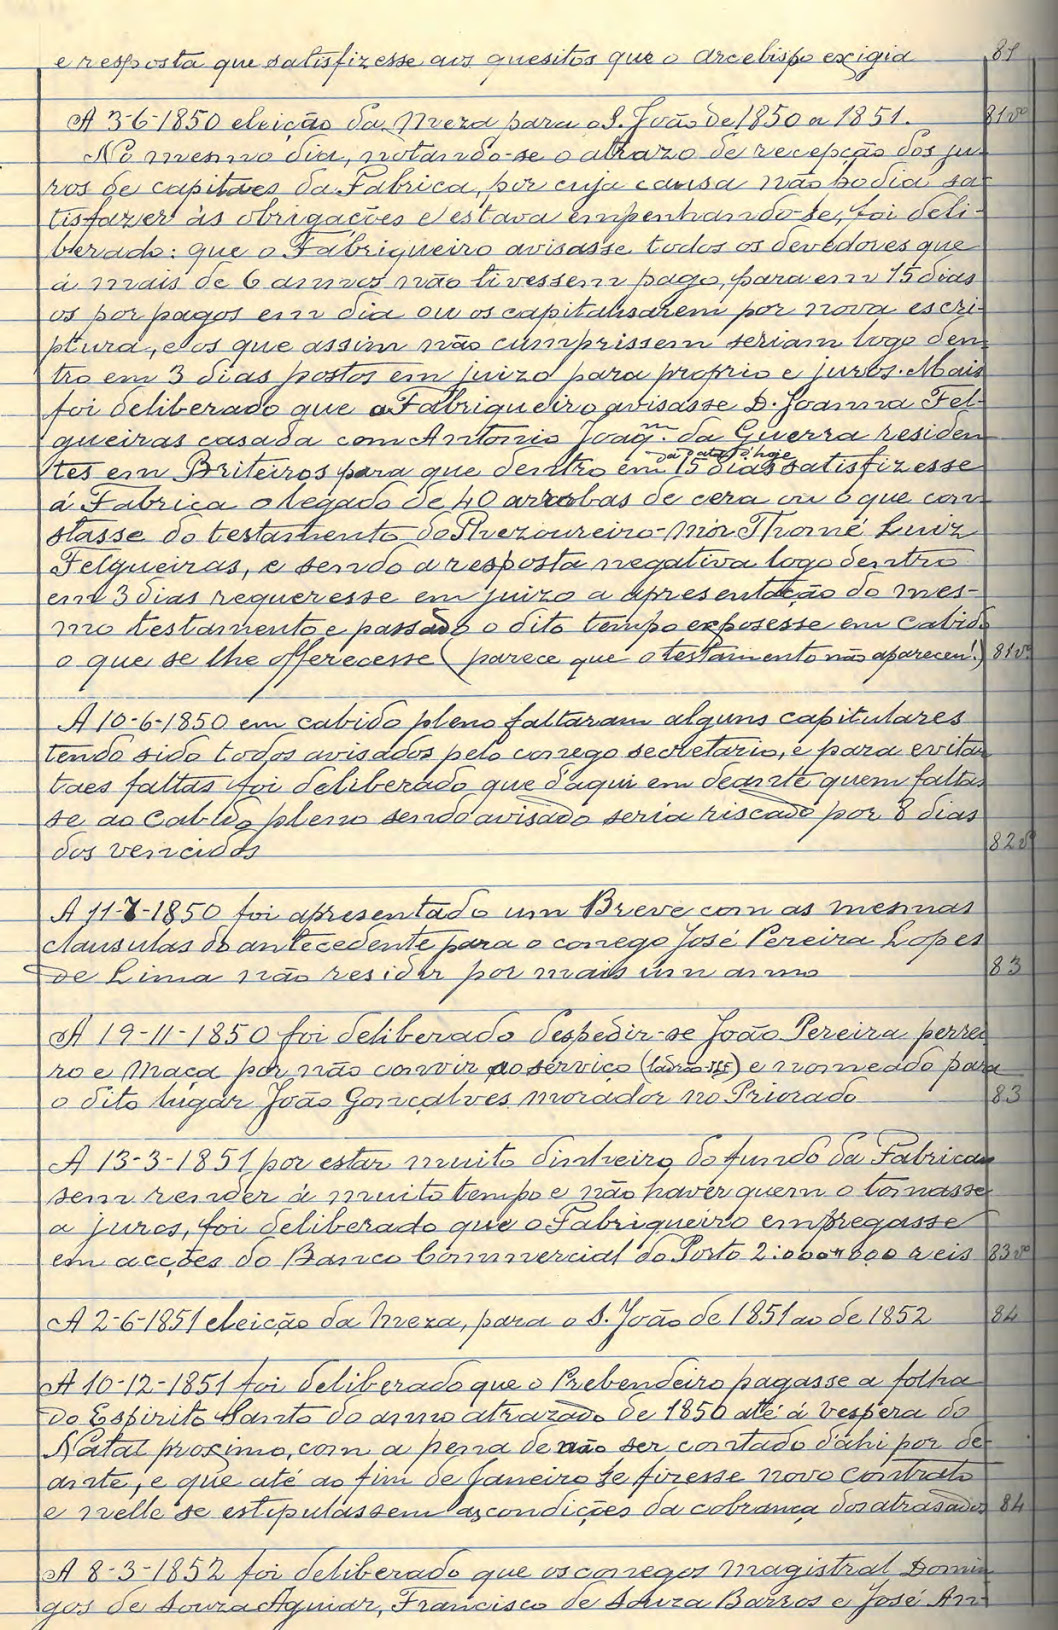 e resposta que satisfizesse aos quesitos que o Arcebispo exigia 81
A 3-6-1850 eleição da Meza para o S. João de 1850 a 1851. 81vº
No mesmo dia, notando-se o atrazo de recepção dos ju-
ros de capitaes da Fabrica, por cuja causa não podia sa-
tisfazer ás obrigações e estava empenhando-se, foi deli-
berado: que o Fabriqueiro avisasse todos os devedores que
á mais de 6 annos não tivessem pago, para em 15 dias
os pôr pagos em dia ou os capitalisarem por nova escri-
ptura, e os que assim não cumprissem seriam logo den-
tro em 3 dias postos em juizo para proprio e juros. Mais
foi deliberado que o Fabriqueiro avisasse D. Joanna Fel-
gueiras casada com Antonio Joaqm. da Guerra residen-
tes em Briteiros para que dentro em 15 dias da data d'hoje satisfizesse
á Fabrica o legado de 40 arrobas de cera ou o que con-
stasse do testamento do Thezoureiro-Mór Thomé Luiz
Felgueiras, e sendo a resposta negativa logo dentro
em 3 dias requeresse em juizo a apresentação do mes-
mo testamento e passado o dito tempo exposesse em Cabido
o que se lhe offerecesse (parece que o testamento não apareceu!) 81vº
A 10-6-1850 em cabido pleno faltaram alguns capitulares
tendo sido todos avisados pelo conego secretario, e para evitar
taes faltas foi deliberado que d'aqui em deante quem faltas-
se ao Cabido pleno sendo avisado seria riscado por 8 dias
dos vencidos 82vº
A 11-7-1850 foi apresentado um Breve com as mesmas
clausulas do antecedente para o conego José Pereira Lopes
de Lima não residir por mais um anno 83
A 19-11-1850 foi deliberado despedir-se João Pereira perrei-
ro e Maça por não convir ao serviço e nomeado para
o dito lugar João Gonçalves morador no Priorado 83
A 13-3-1851 por estar muito dinheiro do fundo da Fabrica
sem render á muito tempo e não haver quem o tomasse
a juros, foi deliberado que o Fabriqueiro empregasse
em acções do Banco Commercial do Porto 2:000#000 reis 83vº
A 2-6-1851 eleição da Meza, para o S. João de 1851 ao de 1852 84
A 10-12-1851 foi deliberado que o Prebendeiro pagasse a folha
do Espirito Santo do anno atrazado de 1850 até á vespera do
Natal proximo, com a pena de não ser contado d'ahi por de-
ante, e que até ao fim de Janeiro se fizesse novo contrato
e nelle se estipulassem as condições da cobrança dos atrasados 84
A 8-3-1852 foi deliberado que os conegos Magistral Domin-
gos de Souza Aguiar, Francisco de Souza Barros e José An-